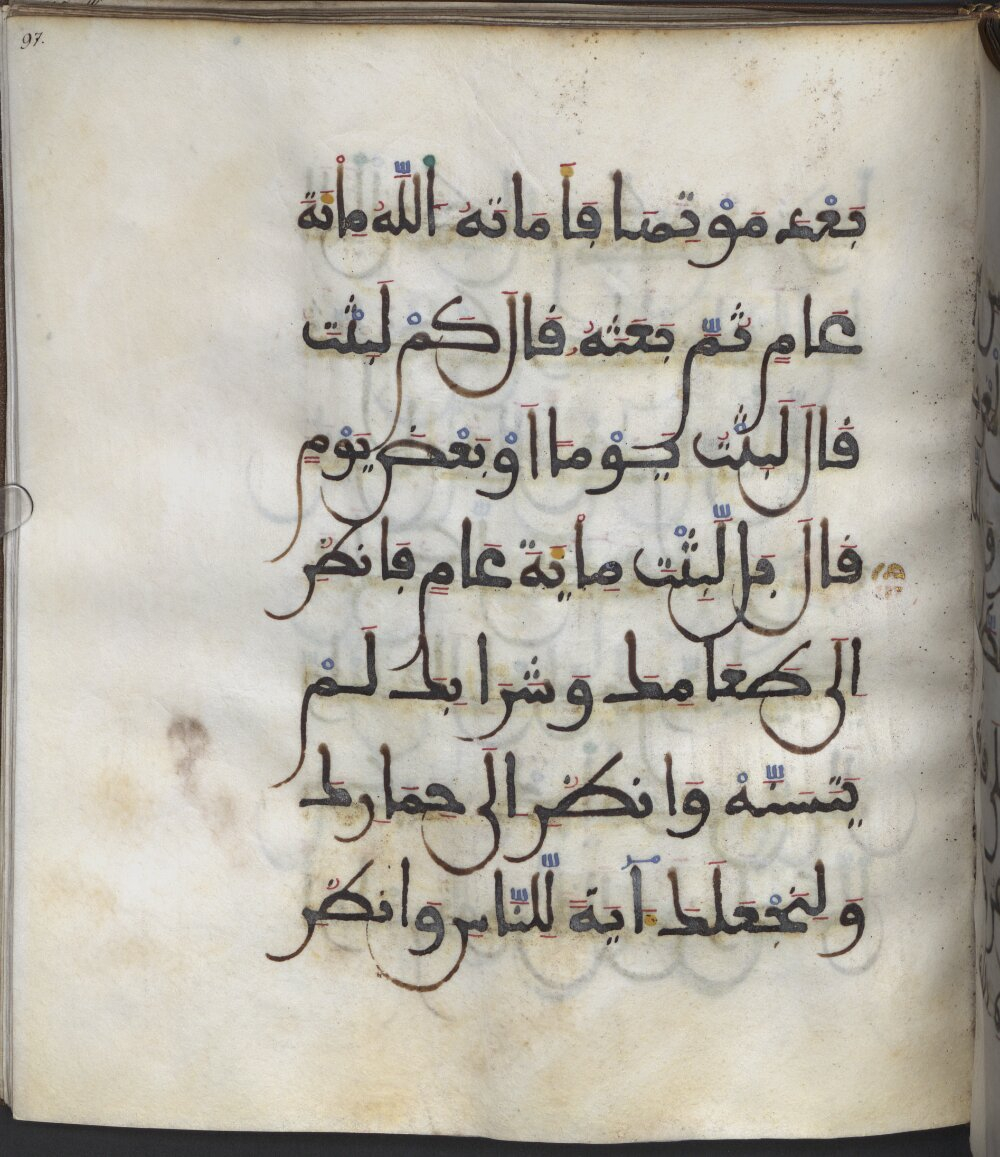 97.
بَعْدَ مَوْتِهَا فَأَمَاتَهُ اُللَّهُ مِاْئَةَ
عَامٍ ثُمَّ بَعَثَهُ قَالَ كَمْ لَبِثْتَ
قَالَ لَبِثْتُ يَوْماً اَوْ بَعْضَ يَوْمٍ
قَالَ بَل لَّبِثْتَ مِاْئَةَ عَامٍ فَانظُرِ
اِلَى طَعَامِكَ وَشَرَابِكَ لَمْ
يَتَسَنَّهْ وَانظُرِ اِلَى حِمَارِكَ
وَلِنَجْعَلَكَ ءَايَةً لِّلنَّاسِ وَانظُرِ